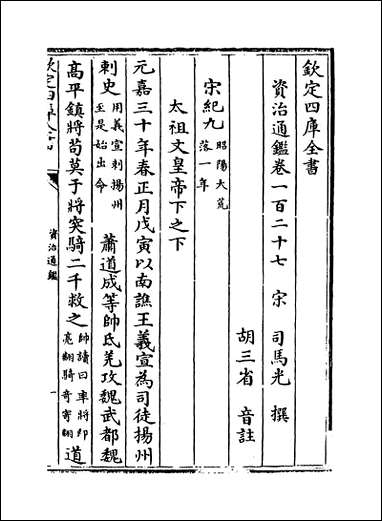 欽定四庫全書
資治通鑑卷一百二十七　宋　司馬光　撰
胡三省　音註
宋紀九昭陽大荒落一年
太祖文皇帝下之下
元嘉三十年春正月戊寅以南譙王義宣為司徒揚州
刺史用義宣刺揚州至是始出命　蕭道成等帥氐羌攻魏武都魏
高平鎮將苟莫于將突騎二千救之帥讀曰率將即亮翻騎奇寄翻道
欽定四庫全書
資治通鑑
一